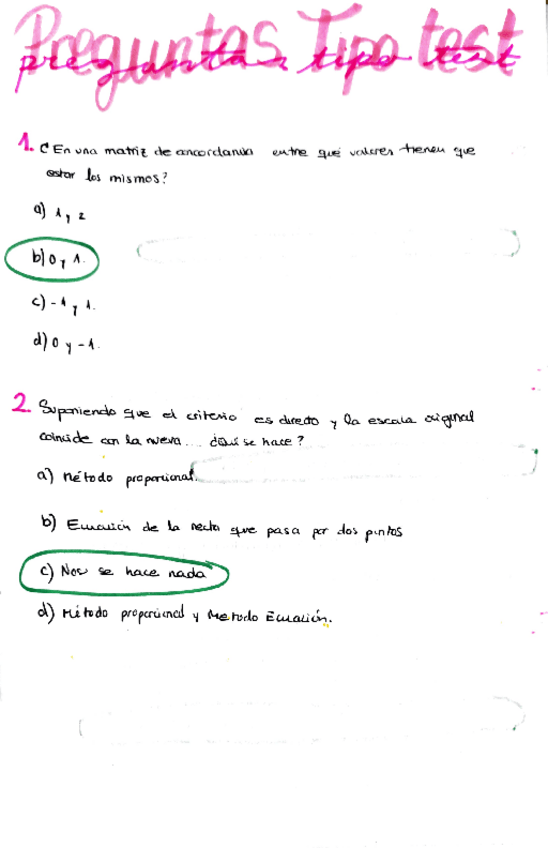 Preguntas Tipo test
preguntas tipo test
1. ¿En una matriz de concordancia entre qué valores tienen que
estar los mismos?
a) 1 y 2
b) 0 y 1.
c) -1 y 1.
d) 0 y -1.
2. Suponiendo que el criterio es directo y la escala original
coincide con la nueva... ¿Qué se hace?
a) Método proporcional.
b) Ecuación de la recta que pasa por dos puntos
c) No se hace nada
d) Método proporcional y Metodo Ecuación.